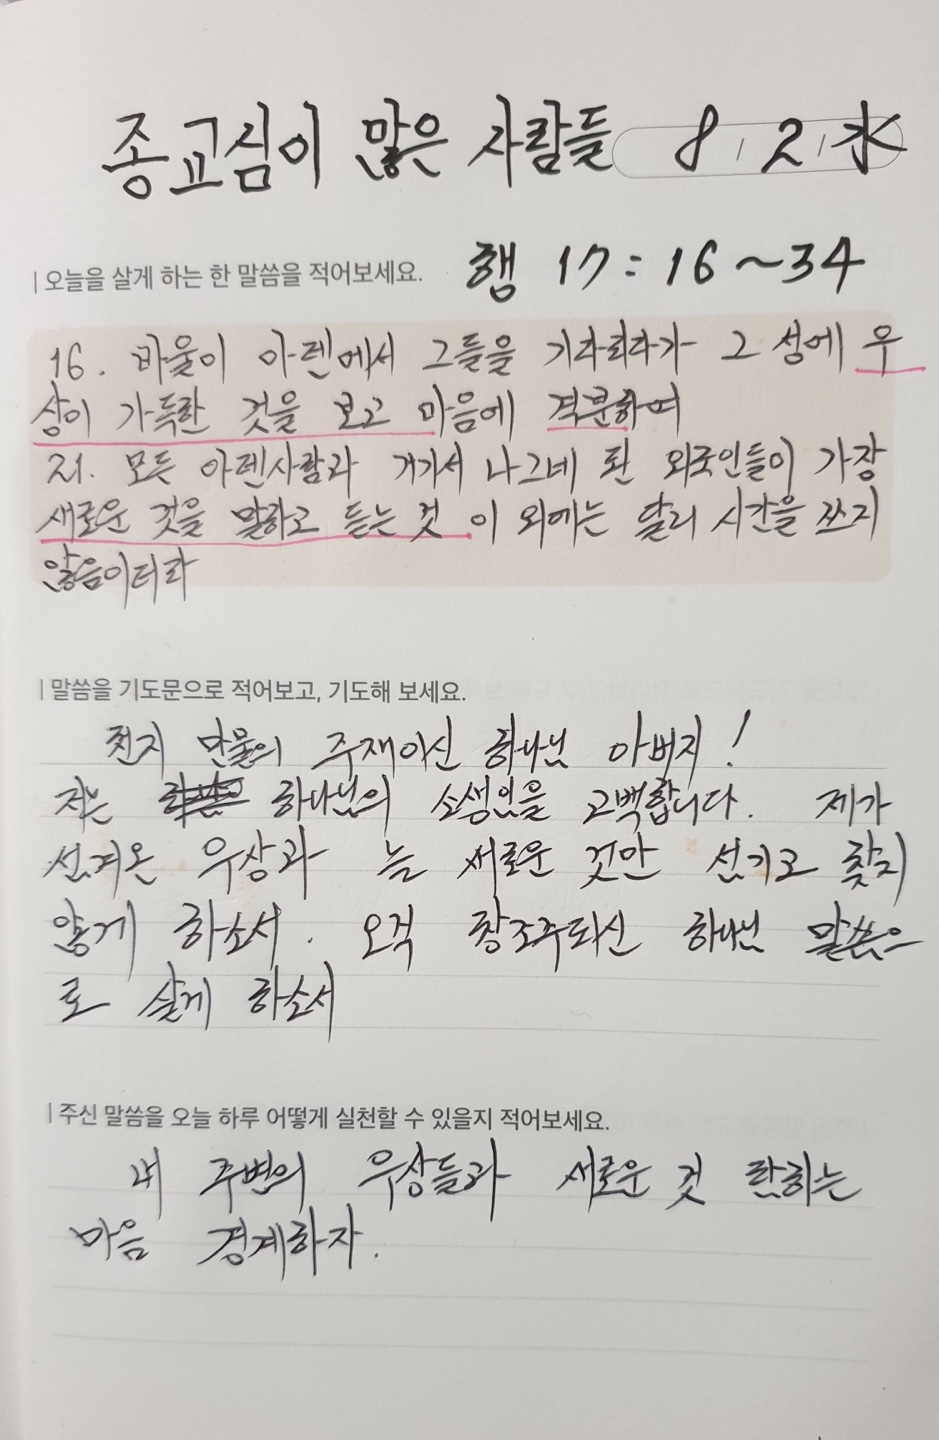 종교심이 많은 사람들 8 2 水
오늘을 살게 하는 한 말씀을 적어보세요. 행 17:16~34
16. 바울이 아덴에서 그들을 기다리다가 그 성에 우
상이 가득한 것을 보고 마음에 격분하여
21. 모든 아덴사람과 거기서 나그네 된 외국인들이 가장
새로운 것을 말하고 듣는 것 이 외에는 달리 시간을 쓰지
않음이더라
말씀을 기도문으로 적어보고, 기도해 보세요.
천지 만물의 주재이신 하나님 아버지!
저는 하나님의 소생임을 고백합니다. 제가
섬겨온 우상과 늘 새로운 것만 섬기고 찾지
않게 하소서. 오직 창조주되신 하나님 말씀으
로 살게 하소서
주신 말씀을 오늘 하루 어떻게 실천할 수 있을지 적어보세요.
내 주변의 우상들과 새로운 것 탐하는
마음 경계하자.